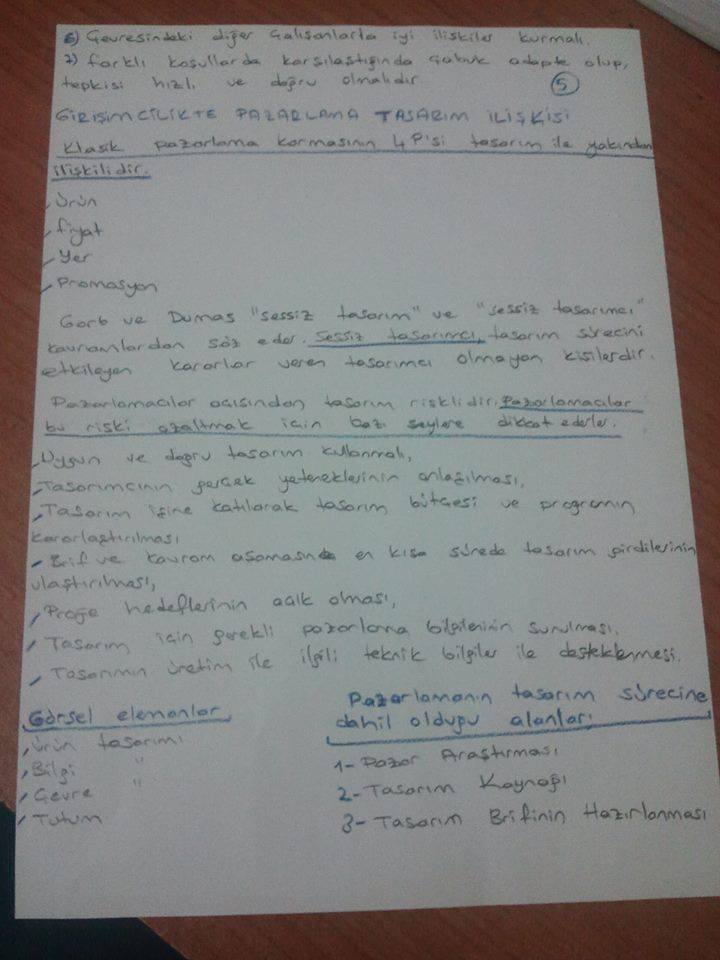 6) Çevresindeki diğer çalışanlarla iyi ilişkiler kurmalı.
7) farklı koşullarda karşılaştığında çabuk adapte olup,
tepkisi hızlı ve doğru olmalıdır.
5
GİRİŞİMCİLİKTE PAZARLAMA TASARIM İLİŞKİSİ
Klasik pazarlama karmasının 4P'si tasarım ile yakından
ilişkilidir.
Ürün
fiyat
Yer
Promasyon
Gorb ve Dumas "sessiz tasarım" ve "sessiz tasarımcı"
kavramlardan söz eder. Sessiz tasarımcı, tasarım sürecini
etkileyen kararlar veren tasarımcı olmayan kişilerdir.
Pazarlamacılar açısından tasarım risklidir. Pazarlamacılar
bu riski azaltmak için bazı şeylere dikkat ederler.
Uygun ve doğru tasarım kullanmalı,
Tasarımcının gerçek yeteneklerinin anlaşılması,
Tasarım işine katılarak tasarım bütçesi ve programın
kararlaştırılması
Brif ve kavram aşamasında en kısa sürede tasarım girdilerinin
ulaştırılması,
Proğe hedeflerinin açık olması,
Tasarım için gerekli pazarlama bilgilerinin sunulması.
Tasarımın üretim ile ilgili teknik bilgiler ile desteklenmesi.
Görsel elemanlar
Ürün tasarımı
Bilgi "
Çevre "
Tutum
Pazarlamanın tasarım sürecine
dahil olduğu alanlar:
1- Pazar Araştırması
2- Tasarım Kaynağı
3- Tasarım Brifinin Hazırlanması